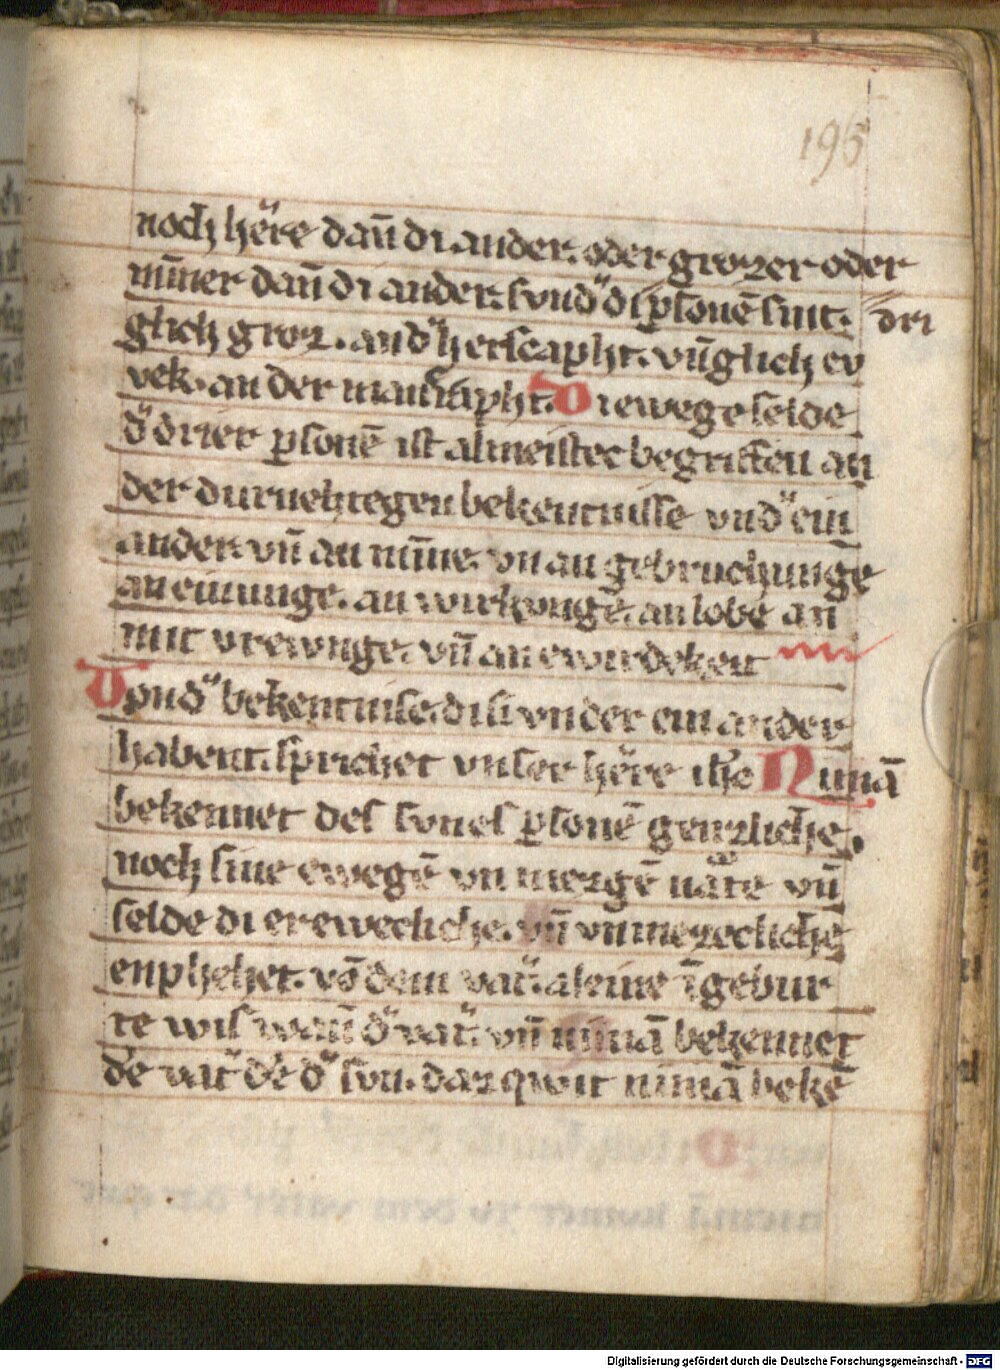 195
noch h&#x27;ere dan̄ di ander. oder grozer oder
mīner dan̄ di ander. sund&#x27; di ꝑsonē sint.
dri
glich groz. an d&#x27; herscapht. vn̄ glich ev
vek. an der mancrapht. Di ewege selde
d&#x27; drier ꝑsonē ist almeistec begriffen an
der durnehtegen bekentnisse vnd&#x27; ein
ander. vn̄ an mīne. vn an gebruchunge
an einunge. an wirkvnge. an lobe an
mit vrewnge. vn̄ an ewirdeket
Vnd&#x27; bekentnise. di si vnder ein ander
habent. sprichet vnser h&#x27;ere ihc Nimā
bekennet des sunes ꝑsonē genzliche.
noch sine ewegē vn mezgē nat&#x27;e vn̄
selde di er ewecliche. vn̄ vnmezecliche
enphehet. vō dem vat&#x27;. aleine ī gebur
te wis wan̄ d&#x27; vat&#x27;. vn̄ nimā bekennet
dē vat&#x27; dē d&#x27; svn. daz qwit nimā bekē
Digitalisierung gefördert durch die Deutsche Forschungsgemeinschaft - DFG